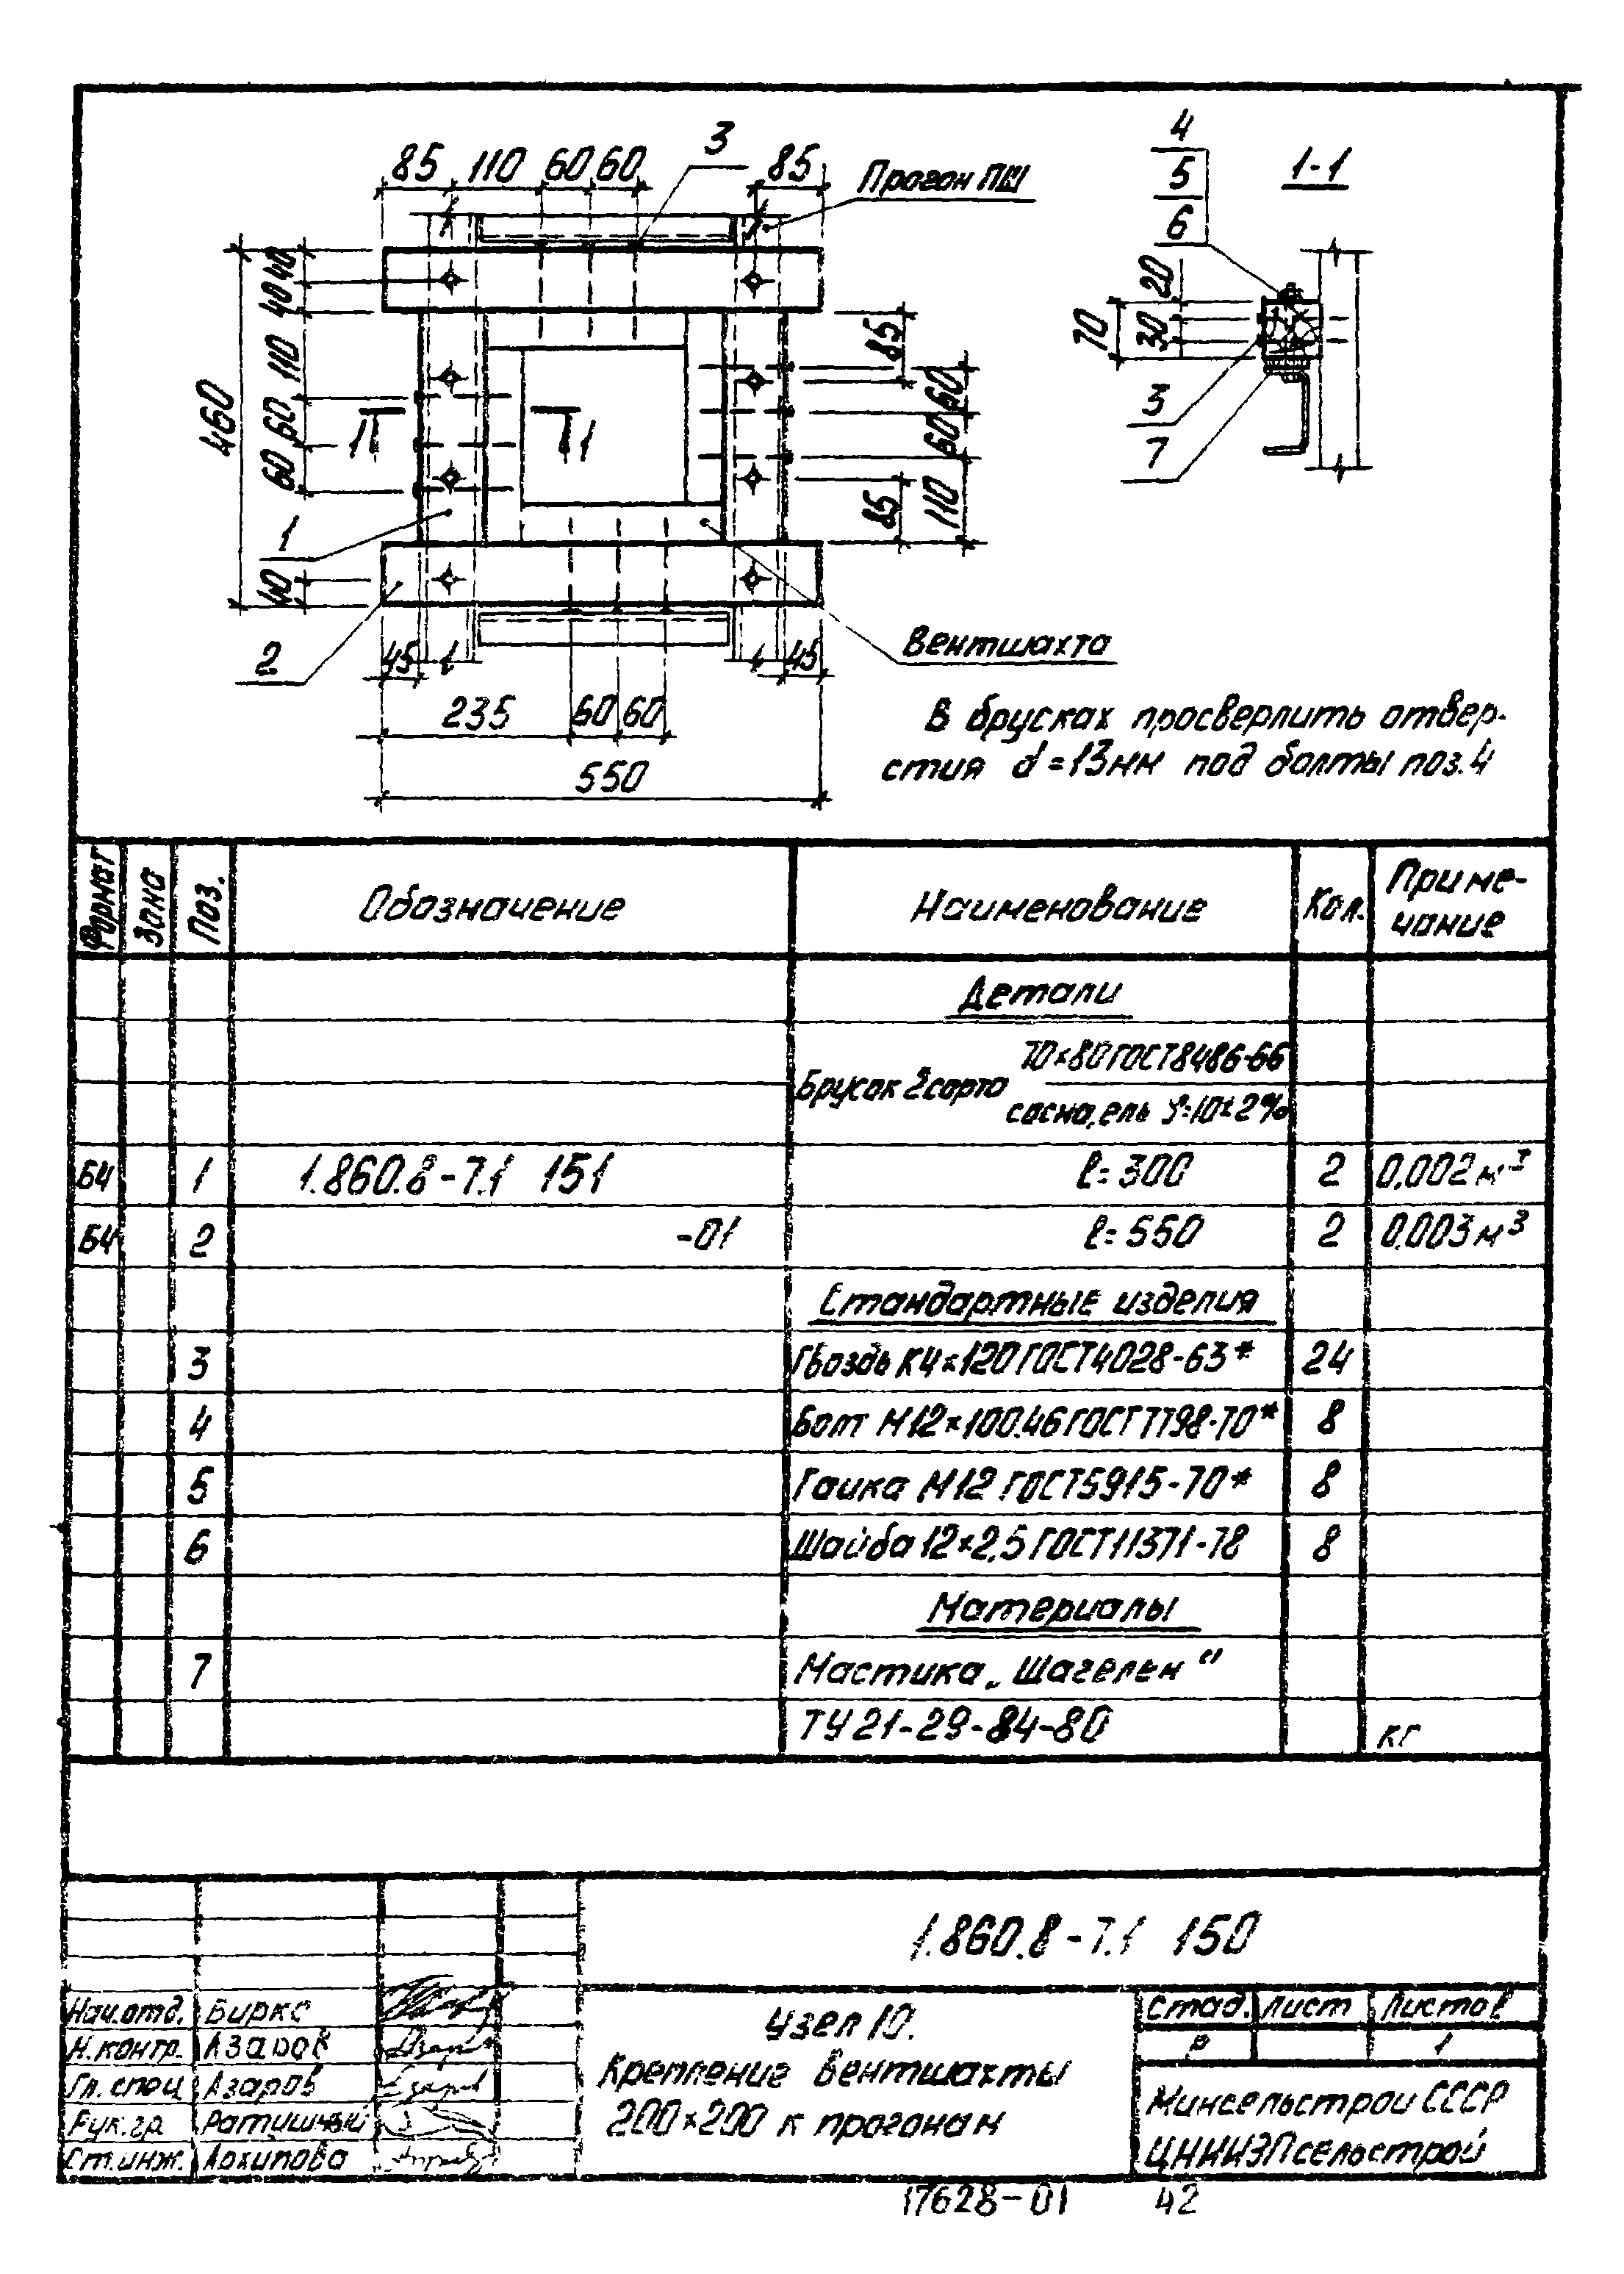 85 110 60 60 3 85
Прогон ПШ
4
5
6
1-1
460
40 40
110
60
60
40
1
2
1 1
85
60
60
110
85
45 45
235 60 60
550
Вентшахта
20
30
70
3
7
В брусках просверлить отвер-
стия d=13мм под болты поз.4
Формат Зона Поз. Обозначение Наименование Кол. Приме-
чание
Детали
70×80 ГОСТ 8486-66
Брусок 2 сорта
сосна, ель 10±2%
БЧ 1 1.860.8-7.1 151 ℓ=300 2 0.002 м³
БЧ 2 -01 ℓ=550 2 0.003 м³
Стандартные изделия
3 Гвоздь К4×120 ГОСТ 4028-63* 24
4 Болт М12×100.46 ГОСТ 7798-70* 8
5 Гайка М12 ГОСТ 5915-70* 8
6 Шайба 12×2,5 ГОСТ 11371-78 8
Материалы
7 Мастика „Шагелен"
ТУ 21-29-84-80 кг
1.860.8-7.1 150
Нач.отд. Биркс
Н.контр. Азаров
Гл.спец Азаров
Рук.гр.
Ст.инж. Архипова
Узел 10.
Крепление вентшахты
200×200 к прогонам
Стад. Лист Листов
Р 1
Минсельстрой СССР
ЦНИИЭПсельстрой
17628-01 42